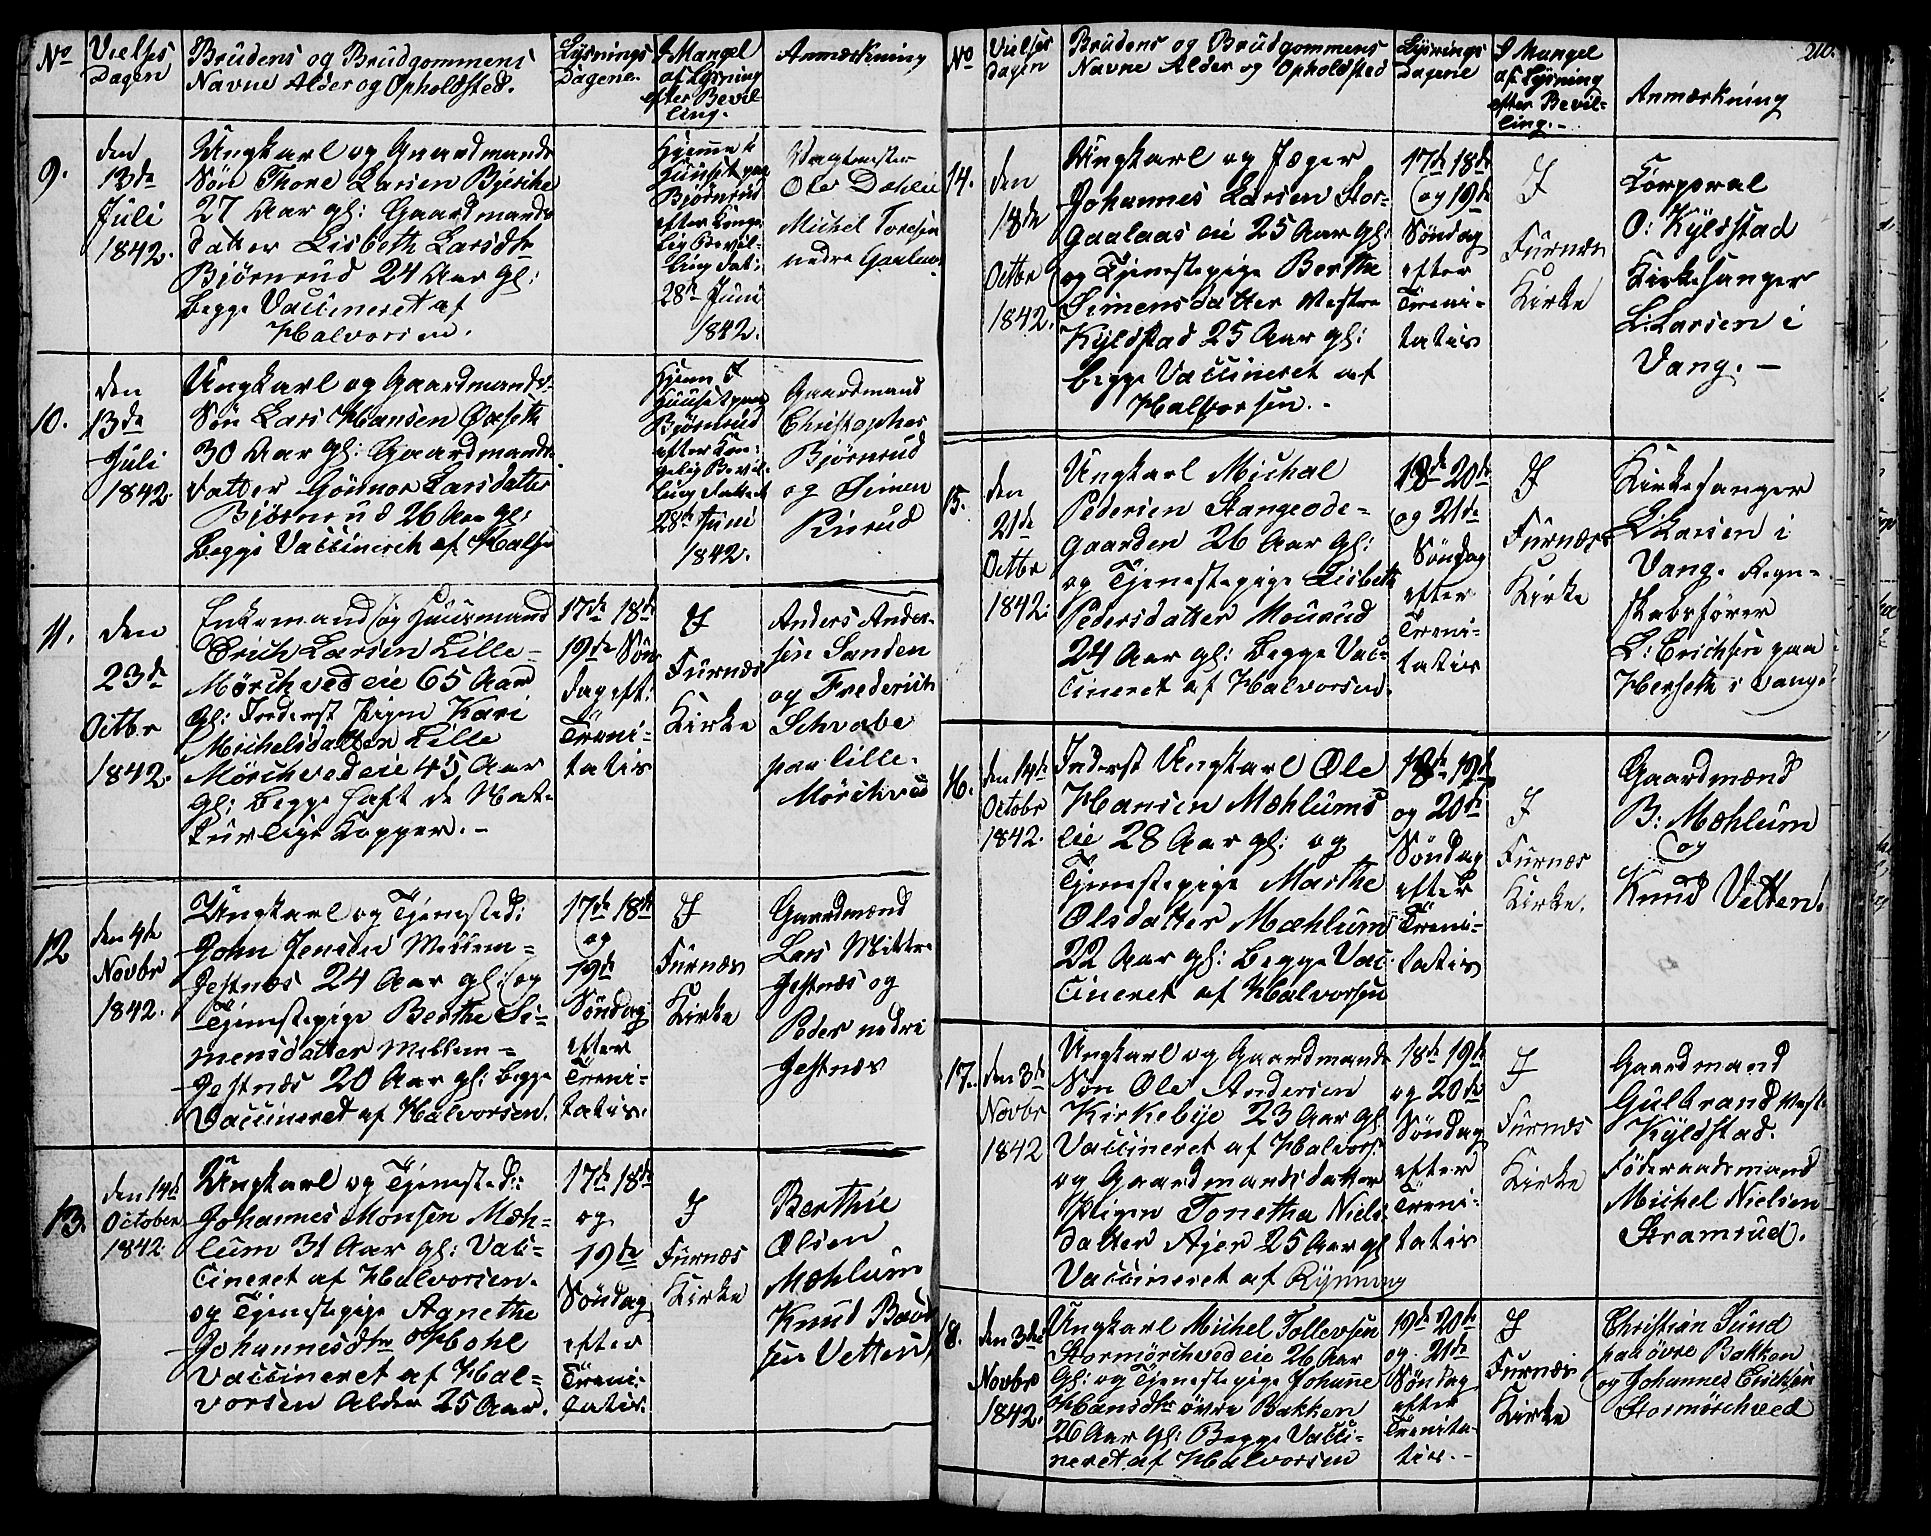 No
Vielses
Dagen
Brudens og Brudgommens
Navne Alder og Opholdsted.
Lysnings
Dagene.
I Mangel
af Lysning
efter Bevil-
ling.
Anmærkning
9.
den
13de
Juli
1842.
Ungkarl og Gaardmands
Søn Thore Larsen Bjerche
27 Aar gl: Gaardmands
datter Lisbeth Larsdtr
Bjørnrud 24 Aar gl:
Begge Vaccineret af
Halvorsen.
Hjemme i
Huuset paa
Bjørnrud
efter Konge
lig Bevil-
ling dat:
28de Juni
1842.
Vagtmester
Ole Dæhlie
Michel Toresen
nedre
10.
den
13de
Juli
1842.
Ungkarl og Gaardmands-
Søn Lars Hansen
30 Aar gl: Gaardmands
datter Gönnor Larsdatter
Bjørnrud 26 Aar gl:
Begge Vaccineret af
Hjem I
Huuset paa
Bjørnrud
efter Kon-
gelig Bevil-
ling dateret
28de Juni
1842.
Gaardmand
Christopher
Bjørnrud
og Simen
11.
den
23de
Octbr
1842.
Enkemand og Huusmand
Erich Larsen Lille-
Mørchved eie 65 Aar
gl: Inderst Pigen Kari
Michelsdatter Lille
Mørchved eie 45 Aar
gl: Begge haft de Nat-
turlige Kopper.-
17de 18de
19de Søn
dag eft:
Treni-
tatis
I
Furnæs
Kirke
Anders Ander-
sen Sanden
og Frederich
Schvabe
paa Lille-
Mörchved
12
den 4de
Novbr
1842.
Ungkarl og Tjenested:
John Jensen Mellem-
Jestnæs 24 Aar gl: og
Tjenestepige Berthe Si-
mensdatter Mellem-
Jestnæs 20 Aar gl: Begge
Vaccineret af Halvorsen.
17de 18de
og
19de
Søndag
efter
Treni-
tatis.
I
Furnæs
Kirke
Gaardmænd
Lars Mittre
Jestnæs og
Peder nedre
Jestnæs
13.
den 14de
October
1842.
Ungkarl og Tjenested:
Johannes Monsen Mæh-
lum 31 Aar gl: Vac-
cineret af Halvorsen.
og Tjenestepige Agnethe
Johannesdtr Hohl
Vaccineret af Hal-
vorsen Alder 25 Aar.
17de 18de
og
19de
Søndag
efter
Treni-
tatis.
I
Furnæs
Kirke
Olsen
Mæhlum
Knud
sen Vetten
No
Vielses
dagen
Brudens og Brudgommens
Navne Alder og Opholdsted
Lysnings
dagene
I Mangel
af Lysning
efter Bevil-
ling.-
Anmærkning
210.
14.
den
18de
Octbr
1842.
Ungkarl og Jæger
Johannes Larsen Stor-
Gaalaas eie 25 Aar gl:
og Tjenestepige Berthe
Simensdatter Vestre
Kyldstad 25 Aar gl:
Begge Vaccineret af
Halvorsen.-
17de 18de
og 19de
Søndag
efter
Treni-
tatis
I
Furnæs
Kirke
Corporal
O: Kyldstad
Kirkesanger
L: Larsen i
Vang.-
15.
den
21de
Octbr
1842.
Ungkarl Michal
Pedersen Stangeøde-
gaarden 26 Aar gl:
og Tjenestepige Lisbeth
Pedersdatter Mourud
24 Aar gl: Begge Vac-
cineret af Halvorsen.
19de 20de
og 21de
Søndag
efter
Treni-
tatis
I
Furnæs
Kirke
Kirkesanger
L: Larsen i
Vang. Regn-
skabsfører
L: Erichsen paa
Herseth i Vang.
16.
den 14de
Octobr
1842.
Inderst Ungkarl Ole
Hansen Mæhlums
eie 28 Aar gl: og
Tjenestepige Marthe
Olsdatter Mæhlum
22 Aar gl: Begge Vac-
cineret af Halvorsen
18de 19de
og 20de
Søndag
efter
Treni-
tatis
I
Furnæs
Kirke.
Gaardmænd
B: Mæhlum
og
Knud Vetten.
17.
den 3de
Novbr
1842
Ungkarl og Gaardmands
Søn Ole Andersen
Kirkebye 23 Aar gl:
Vaccineret af Halvors:
og Gaardmandsdatter
Pigen Tonetha Niels-
datter Ajer 25 Aar gl
Vaccineret af Rynning
18de 19de
og 20de
Søndag
efter
Treni-
tatis
I
Furnæs
Kirke
Gaardmand
Gulbrand Vest-
Kyldstad.
Föderaadsmand
Michel Nielsen
Stramrud.
18.
den 3die
Novbr
1842.
Ungkarl Michel Tollevsen
Stormörchved eie 26 Aar
gl: og Tjenestepige Johanne
Hansdtr övre Bakken
26 Aar gl: Begge Vacci-
neret af Halvorsen
19de 20de
og 21de
Søndag
efter
Trenita-
tis.-
I
Furnæs
Kirke
Christian Lund
paa övre Bakken
og Johannes Erichsen
Stormörchved